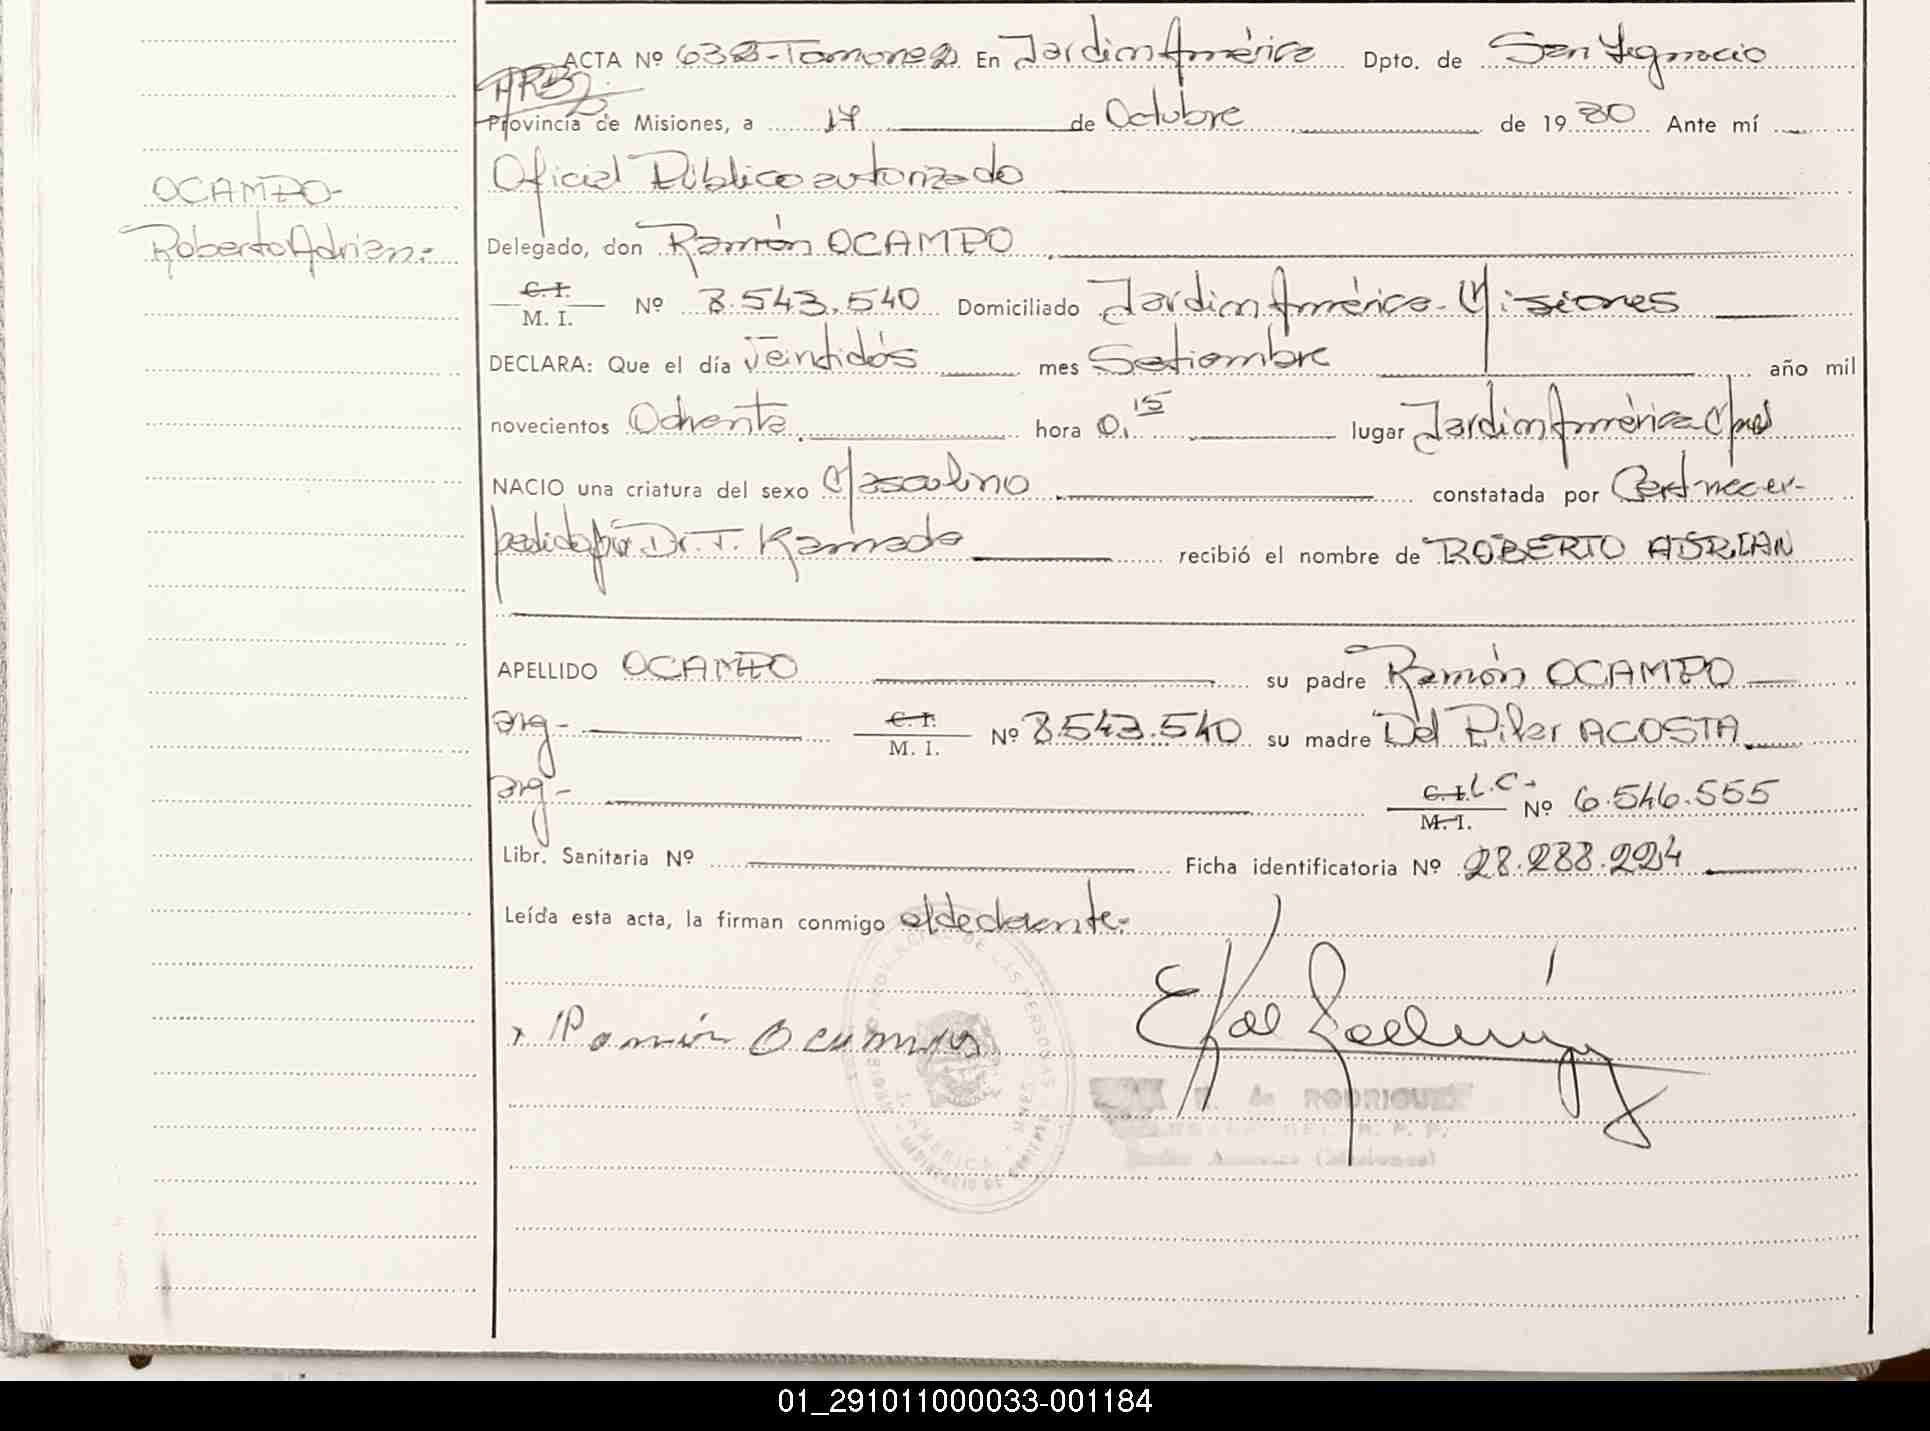 ACTA Nº 638-Tomo nº 2 En Jardín América Dpto. de San Ignacio
Provincia de Misiones, a 17 de Octubre de 1980 Ante mí
Oficial Público autorizado
OCAMPO-
Roberto Adrian:-
Delegado, don Ramón OCAMPO
C. I. M. I. Nº 8.543.540 Domiciliado Jardín América- Misiones
DECLARA: Que el día Veintidós mes Setiembre año mil
novecientos Ochenta hora 0,15 lugar Jardín América Mnes
NACIO una criatura del sexo Masculino constatada por Cert. nac. ex-
pedido por Dr. T. Kamada recibió el nombre de ROBERTO ADRIAN
APELLIDO OCAMPO su padre Ramón OCAMPO
arg- C. I. M. I. Nº 8.543.540 su madre Del Pilar ACOSTA
arg- C. I. L.C. M. I. Nº 6.546.555
Libr. Sanitaria Nº Ficha identificatoria Nº 28.288.224
Leída esta acta, la firman conmigo el declarante:
Ramón Ocampo
de RODRIGUEZ
01_291011000033-001184